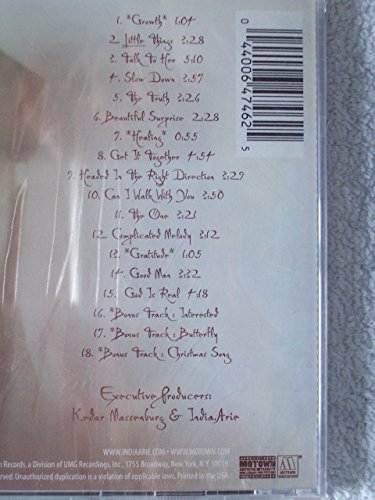 1. *Growth* 1:04
2. Little Things 3:28
3. Talk To Her 5:10
4. Slow Down 3:57
5. The Truth 3:26
6. Beautiful Surprise 2:28
7. *Healing* 0:55
8. Get It Together 4:54
9. Headed In The Right Direction 3:29
10. Can I Walk With You 3:50
11. The One 3:21
12. Complicated Melody 3:12
13. *Gratitude* 1:05
14. Good Man 3:32
15. God Is Real 4:18
16. *Bonus Track: Interested
17. *Bonus Track: Butterfly
18. *Bonus Track: Christmas Song
0 44006 47462 5
Executive Producers:
Kedar Massenburg & India.Arie
WWW.INDIAARIE.COM – WWW.MOTOWN.COM
Records, a Division of UMG Recordings, Inc., 1755 Broadway, New York, N.Y. 10019.
Unauthorized duplication is a violation of applicable laws. Printed in the USA.
MOTOWN
MOTOWN